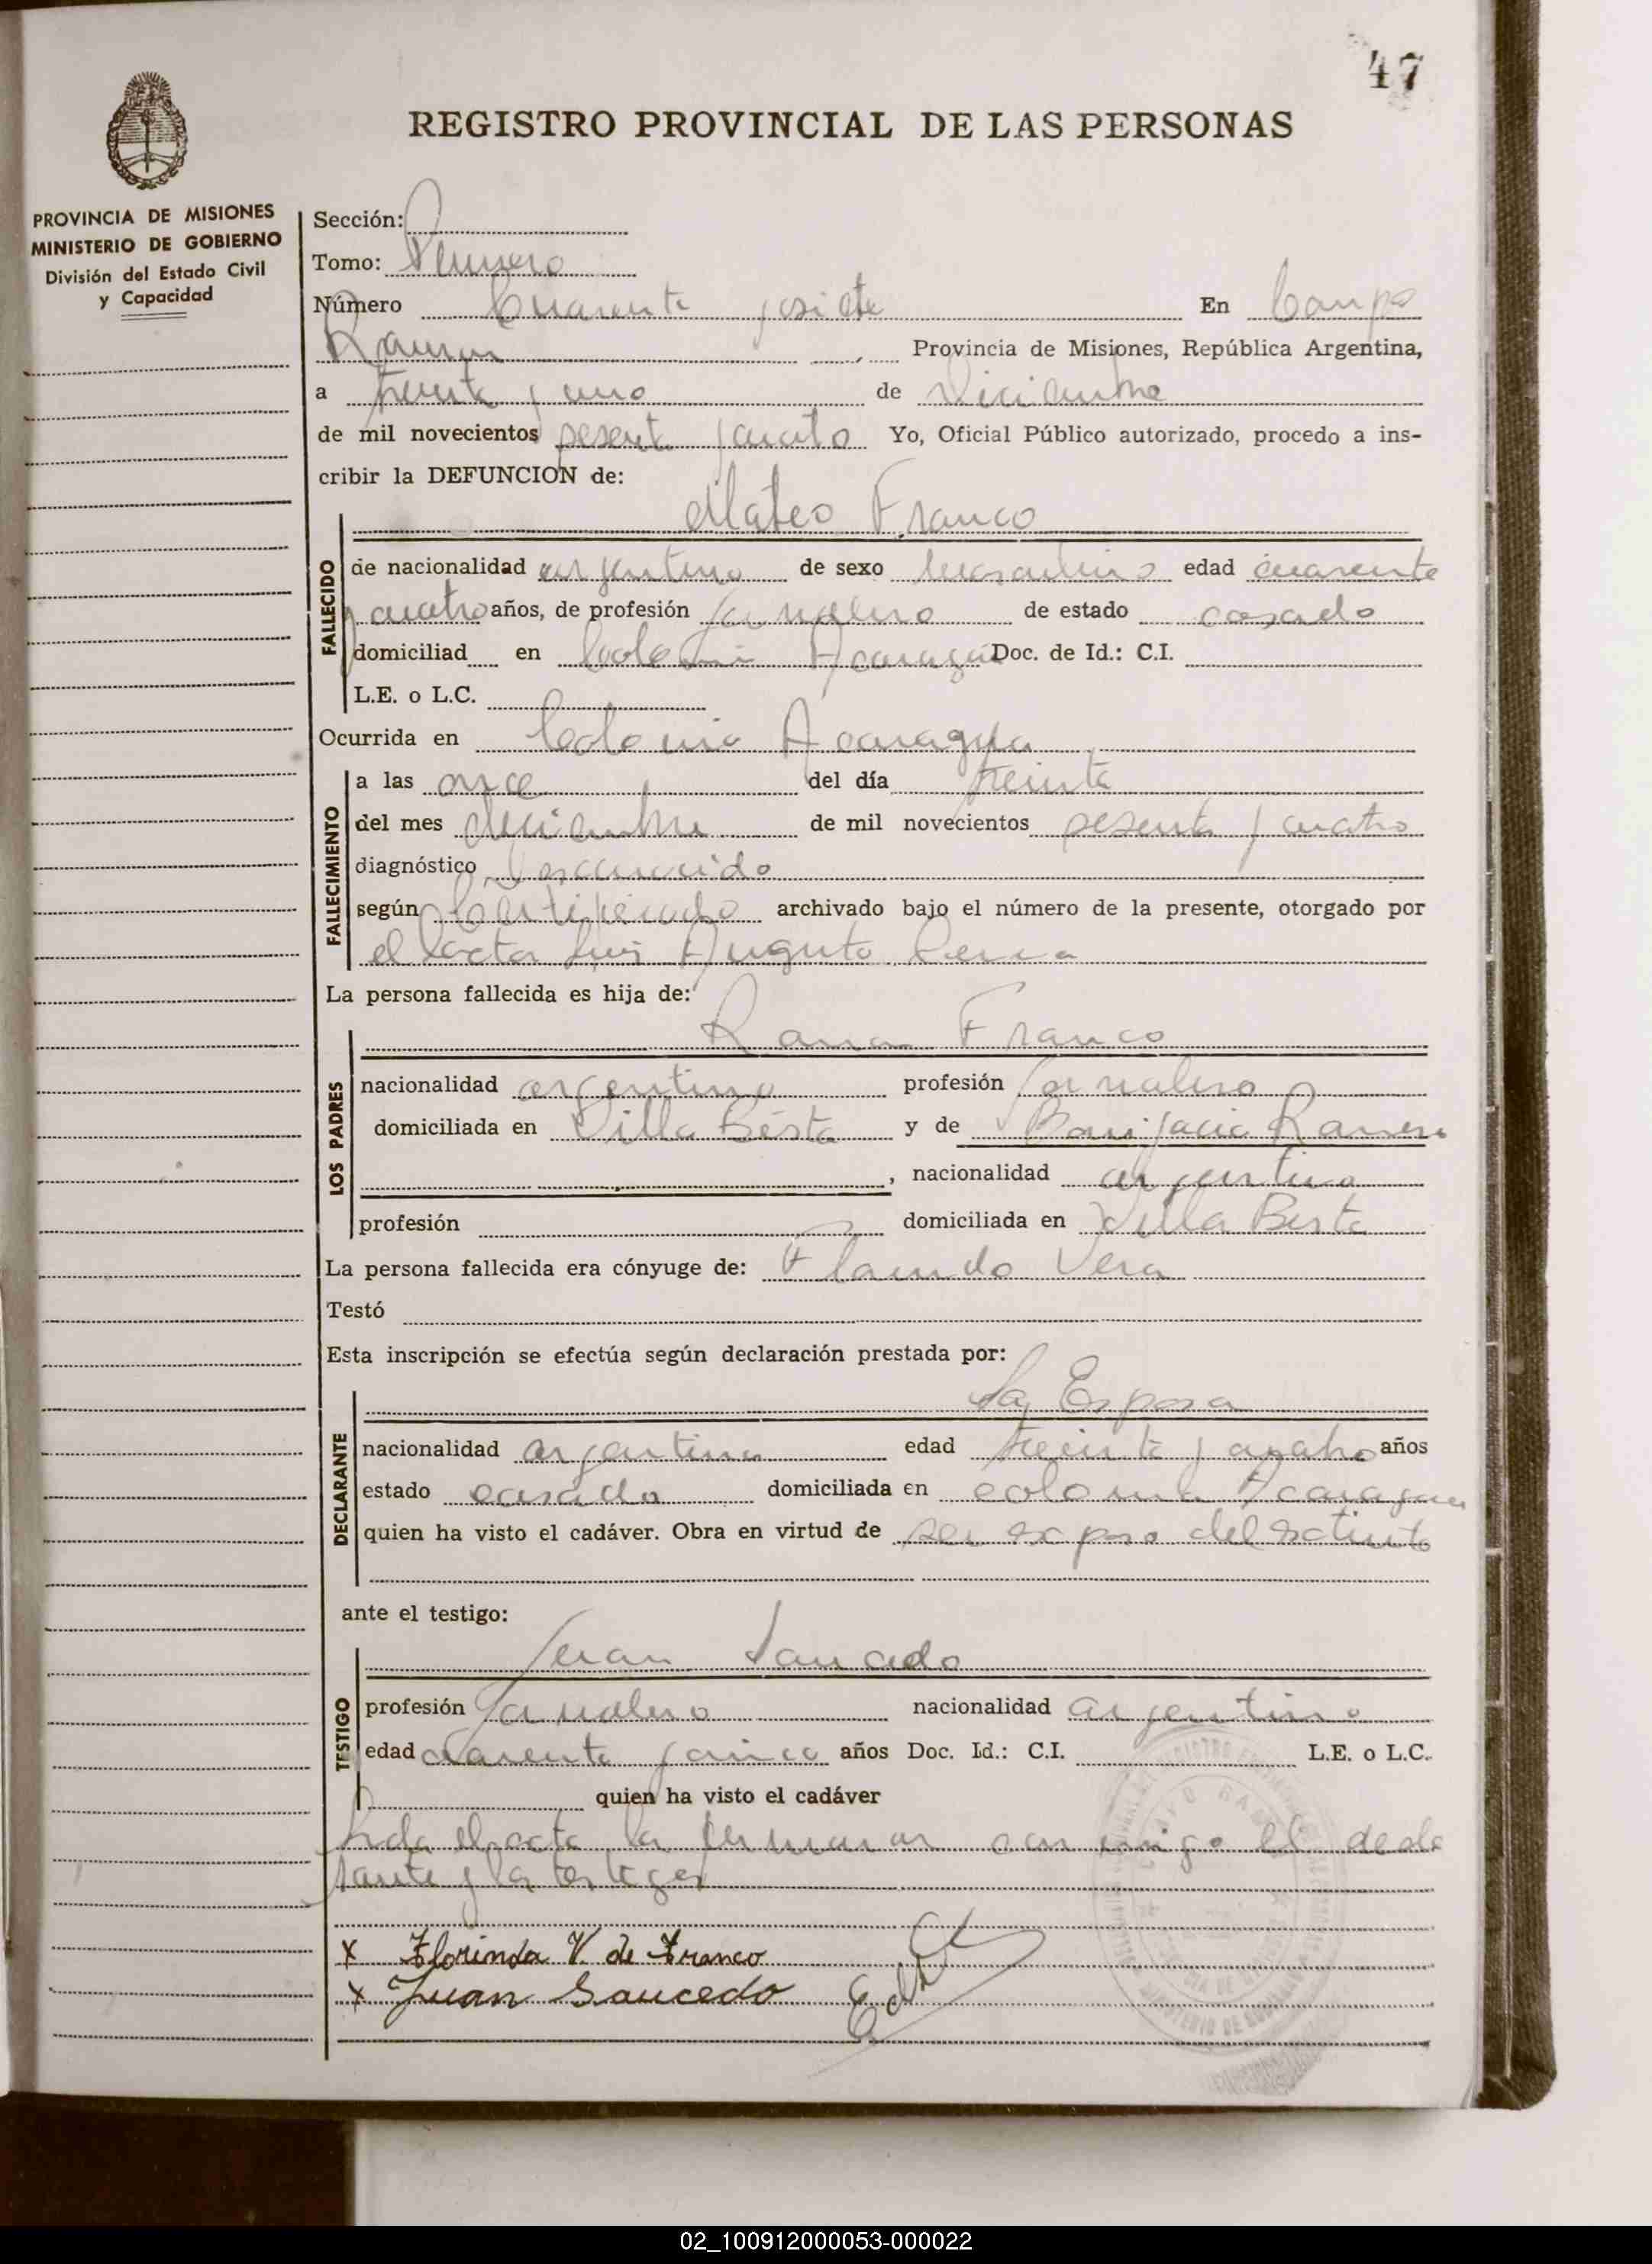 47
REGISTRO PROVINCIAL DE LAS PERSONAS
PROVINCIA DE MISIONES
MINISTERIO DE GOBIERNO
División del Estado Civil
y Capacidad
Sección:
Tomo: Primero
Número Cuarenta y siete En Campo
Ramon Provincia de Misiones, República Argentina,
a treinta y uno de Diciembre
de mil novecientos sesenta y cuatro Yo, Oficial Público autorizado, procedo a ins-
cribir la DEFUNCION de:
Mateo Franco
FALLECIDO
de nacionalidad argentino de sexo masculino edad cuarenta
y cuatro años, de profesión Jornalero de estado casado
domiciliad en Colonia Acaragua Doc. de Id.: C.I.
L.E. o L.C.
Ocurrida en Colonia Acaragua
FALLECIMIENTO
a las once del día treinta
del mes diciembre de mil novecientos sesenta y cuatro
diagnóstico Desconocido
según Certificado archivado bajo el número de la presente, otorgado por
el Doctor Luis Augusto
La persona fallecida es hija de:
Franco
LOS PADRES
nacionalidad argentino profesión Jornalero
domiciliada en Villa y de Bonifacia
, nacionalidad argentina
profesión domiciliada en Villa
La persona fallecida era cónyuge de: Vera
Testó
Esta inscripción se efectúa según declaración prestada por:
La Esposa
DECLARANTE
nacionalidad argentina edad treinta y cuatro años
estado casada domiciliada en colonia Acaragua
quien ha visto el cadáver. Obra en virtud de ser esposa del extinto
ante el testigo:
TESTIGO
Juan Saucedo
profesión Jornalero nacionalidad argentino
edad cuarenta y cinco años Doc. Id.: C.I. L.E. o L.C.
quien ha visto el cadáver
Leida el acta la firman conmigo el decla
rante y los testigos
x Florinda V. de Franco
x Juan Saucedo
02_100912000053-000022